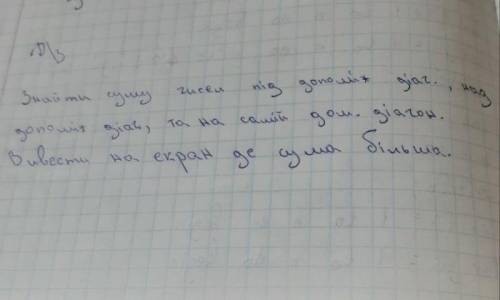 Д/з
Знайти суму чисел під допоміж діаг., над
допоміж діаг, та на самій доп. діагон.
Вивести на екран де сума більша.